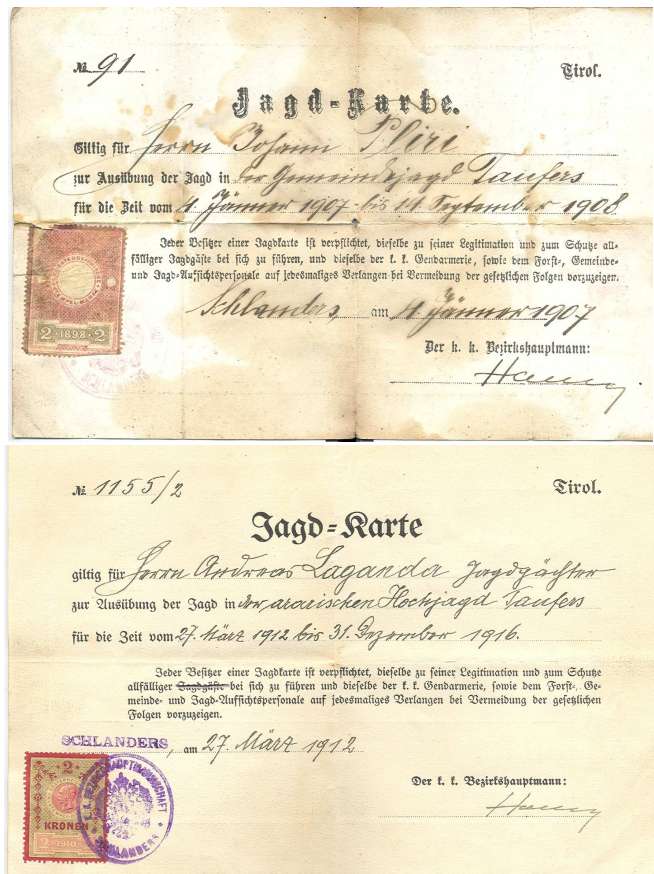 № 91
Tirol.
Jagd-Karte.
Giltig für Herrn Johann Pliri
zur Ausübung der Jagd in der Gemeindejagd Taufers
für die Zeit vom 4. Jänner 1907 bis 14. September 1908
Jeder Besitzer einer Jagdkarte ist verpflichtet, dieselbe zu seiner Legitimation und zum Schutze all-
fälliger Jagdgäste bei sich zu führen, und dieselbe der k. k. Gendarmerie, sowie dem Forst-, Gemeinde-
und Jagd-Aufsichtspersonale auf jedesmaliges Verlangen bei Vermeidung der gesetzlichen Folgen vorzuzeigen.
Schlanders, am 4. Jänner 1907
Der k. k. Bezirkshauptmann:
2 · 1898 · 2
SCHLANDERS
№ 1155/2
Tirol.
Jagd-Karte
giltig für Herrn Andreas Laganda Jagdpächter
zur Ausübung der Jagd in der ärarischen Hochjagd Taufers
für die Zeit vom 27. März 1912 bis 31. Dezember 1916.
Jeder Besitzer einer Jagdkarte ist verpflichtet, dieselbe zu seiner Legitimation und zum Schutze
allfälliger Jagdgäste bei sich zu führen und dieselbe der k. k. Gendarmerie, sowie dem Forst-, Ge-
meinde- und Jagd-Aufsichtspersonale auf jedesmaliges Verlangen bei Vermeidung der gesetzlichen
Folgen vorzuzeigen.
SCHLANDERS, am 27. März 1912
Der k. k. Bezirkshauptmann:
2
KRONEN
2 1910
K.K. BEZIRKSHAUPTMANNSCHAFT
SCHLANDERS